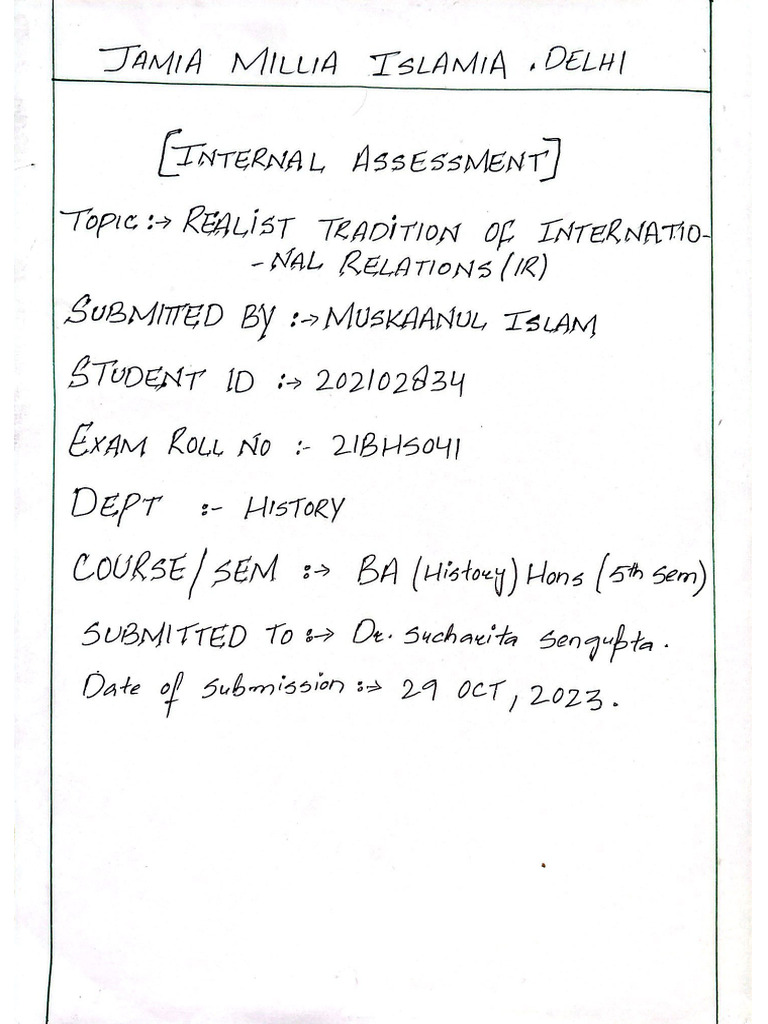 JAMIA MILLIA ISLAMIA . DELHI
[INTERNAL ASSESSMENT]
TOPIC :→ REALIST TRADITION OF INTERNATIO-
-NAL RELATIONS (IR)
SUBMITTED BY :→ MUSKAANUL ISLAM
STUDENT ID :→ 202102834
EXAM ROLL NO :- 21BHS041
DEPT :- HISTORY
COURSE/SEM :→ BA (History) Hons (5th Sem)
SUBMITTED TO :→ Dr. Sucharita Sengupta.
Date of submission :→ 29 OCT, 2023.